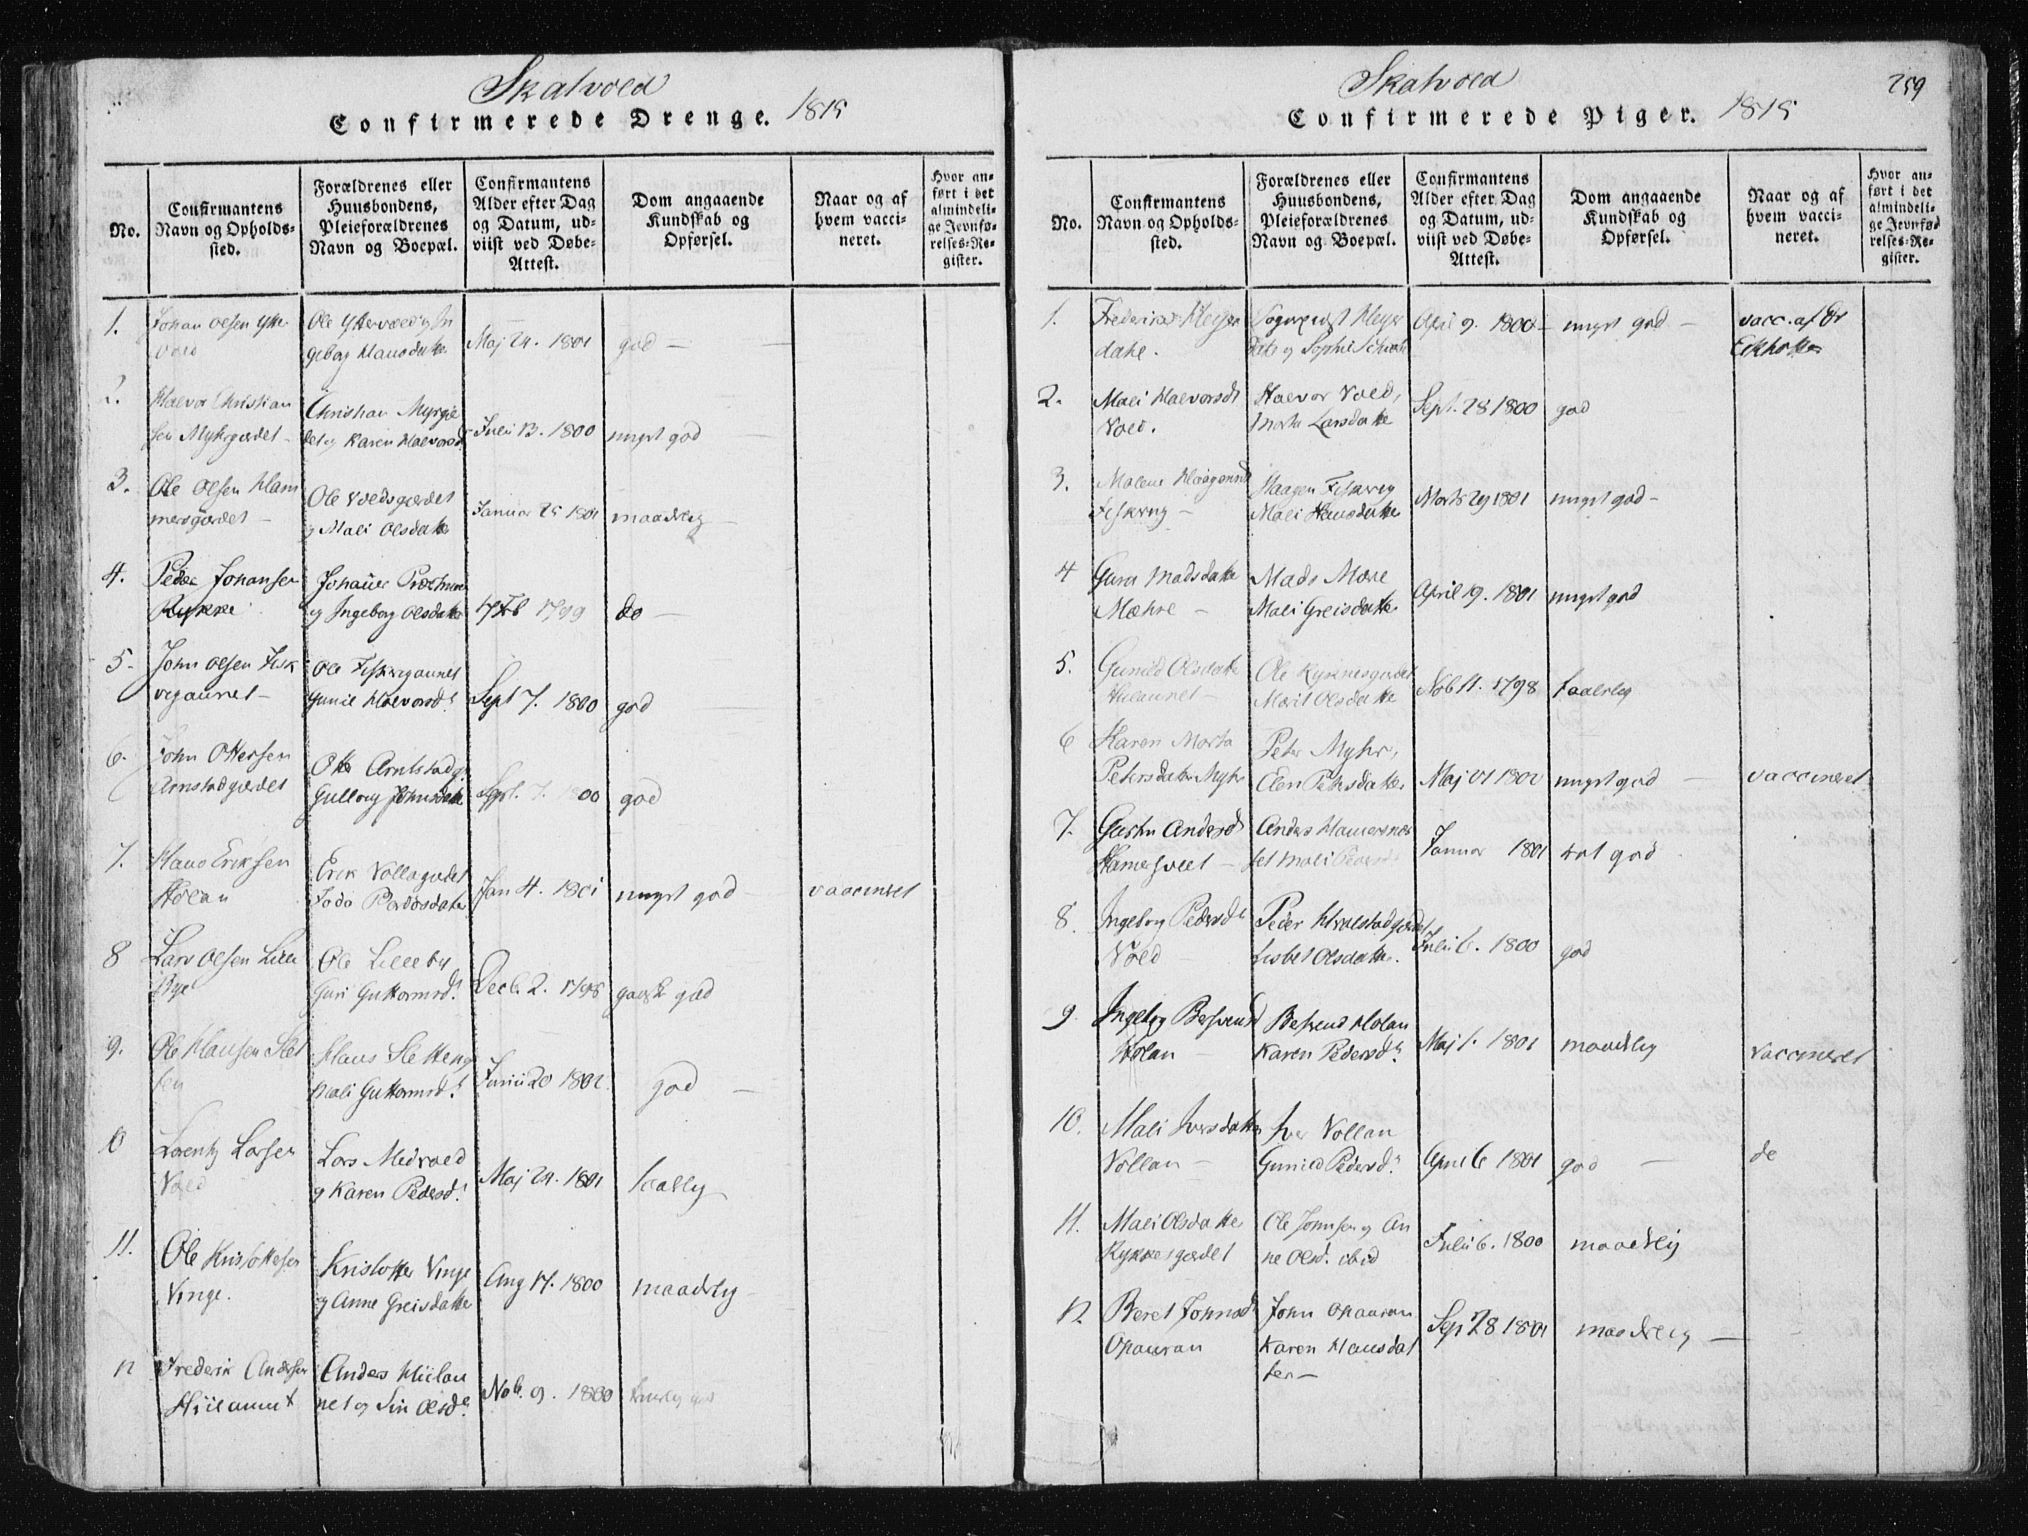 Skatvold
Confirmerede Drenge. 1815
No.
Confirmantens
Navn og Opholds-
sted.
Forældrenes eller
Huusbondens,
Pleieforældrenes
Navn og Boepæl.
Confirmantens
Alder efter Dag
og Datum, ud-
viist ved Døbe-
Attest.
Dom angaaende
Kundskab og
Opførsel.
Naar og af
hvem vacci-
neret.
Hvor an-
ført i det
almindeli-
ge Jevnfø-
relses-Re-
gister.
1.
Johan Olsen Ytter
vold
Ole Yttervold og In
geborg Hansdatter
Maj 24. 1801
god —
2.
Halvor Christian
sen Myhrgærdet –
Christian
det og Karen Halvorsd.
Juli 13. 1800
meget god —
3.
Ole Olsen Ham
mersgærdet –
Ole Voldsgærdet
og Mali Olsdatter
Januar 25 1801
maadelig –
4.
Peder Johansen
Rykke
Johan
og Ingeborg Olsdatter
17 Feb 1799
do —
5.
John Olsen Fisk
vigaunet –
Ole Fiskvigaunet
Gunil Halvorsdr
Sept 7. 1800
god
6.
John Ottersen
Arnstadgærdet
Otter Arnstadg.
Gullovg Johnsdatter
Sept. 7. 1800
god
7.
Hans Eriksen
Holan
Erik Vollagærdet
Pedersdatter
Jan 4. 1801
meget god –
vaccineret
8
Lars Olsen Lille
Bye
Ole Lilleby
Guri Guttormsdr.
Decb. 2. 1798
ganske god
9.
Ole Hansen Slet
ten
Hans Sletteng
Mali Guttormsdr.
Junii 20 1802
god —
10
Lorentz Larsen
Vold
Lars Medvold
og Karen Pedersdr.
Maj 24. 1801
11.
Ole Kristoffersen
Vinge.
Kristoffer Vinge
og Anne Greisdatter
Aug 17. 1800
maadelig
12
Frederik Andersen
Hiilaunet
Anders Hiilau
net og Siri Olsdr.
Nob. 9. 1800
Skatvold
Confirmerede Piger. 1815
259
No.
Confirmantens
Navn og Opholds-
sted.
Forældrenes eller
Huusbondens,
Pleieforældrenes
Navn og Boepæl.
Confirmantens
Alder efter Dag
og Datum, ud-
viist ved Døbe-
Attest.
Dom angaaende
Kundskab og
Opførsel.
Naar og af
hvem vacci-
neret.
Hvor an-
ført i det
almindeli-
ge Jevnfø-
relses-Re-
gister.
1.
Meyer
dahl.
Sogneprest Meyer
dahl og Sophi
April 9. 1800
meget god –
vacc. af Dr
2.
Mali Halvorsdr
Vold.
Halvor Vold,
Marta Larsdatter
Sept. 28 1800
god
3.
Malene Haagensd
Fiskvig –
Haagen Fiskvig
Mali Hansdatter
Marts 29 1801
meget god –
4
Guru Madsdatter
Mæhre –
Mads Mære
Mali Greisdatter
April 19. 1801
meget god
5.
Gunild Olsdatter
Hilaunet –
Ole Rykkesgærdet
Marit Olsdatter
Nob 11. 1798
taalelig
6
Karen Marta
Petersdatter Myhr
Peter Myhr,
Elen Petersdatter
Maj 21 1802
meget god –
vaccineret
7.
Andersd
Anders
set Mali Pedersd
Januar 1801
god
8.
Ingeborg Pedersdr
Vold –
Peder
Lisbet Olsdatter.
Juli 6. 1800
god
9
Ingeborg Besvendsd
Holan –
Besvend Holan
Karen Pedersdr
Maj 1. 1801
maadelig
vaccineret
10.
Mali Iversdatter
Vollan –
Iver Vollan
Gunild Pedersdr
April 6 1801
god —
do
11.
Mali Olsdatter
Rykkesgærdet
Ole Johnsen og An
ne Olsd. ibid
Juli 6. 1800
maadelig
12
Beret Johnsd
Opauran
John Opauran
Karen Hansdat
ter –
Sep 28 1801
maadelig —